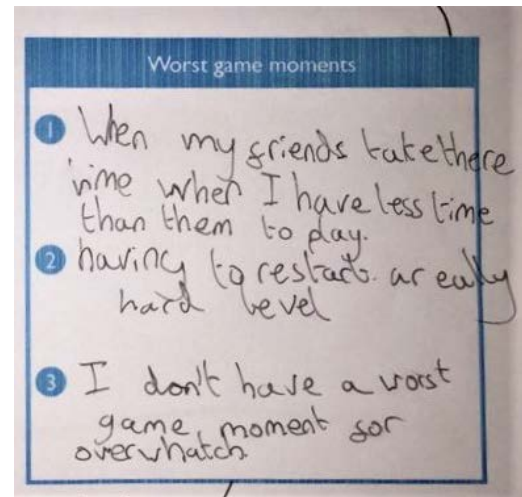 Worst game moments
1 When my friends take there
time when I have less time
than them to play.
2 having to restart. a really
hard level
3 I don't have a worst
game moment for
overwhatch.